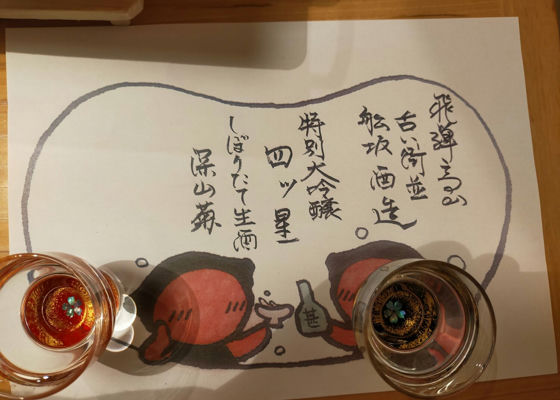 飛騨高山
古い街並
舩坂酒造
特別大吟醸
四ツ星
しぼりたて生酒
深山菊
甚